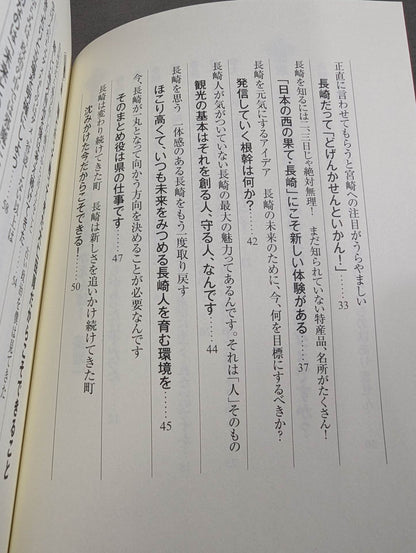 正直に言わせてもらうと宮崎への注目がうらやましい
長崎だって「どげんかせんといかん！」……33
長崎を知るには二、三日じゃ絶対無理！　まだ知られていない特産品、名所がたくさん！
「日本の西の果て・長崎」にこそ新しい体験がある……37
長崎を元気にするアイデア　長崎の未来のために、今、何を目標にするべきか？
発信していく根幹は何か？……42
長崎人が気がついていない長崎の最大の魅力ってあるんです。それは「人」そのもの
観光の基本はそれを創る人、守る人、なんです……44
長崎を思う　一体感のある長崎をもう一度取り戻す
ほこり高くて、いつも未来をみつめる長崎人を育む環境を……45
今、長崎が一丸となって向かう方向を決めることが必要なんです
そのまとめ役は県の仕事です……47
長崎は変わり続けてきた町　長崎は新しさを追いかけ続けてきた町
沈みかけた今だからこそできる！……50